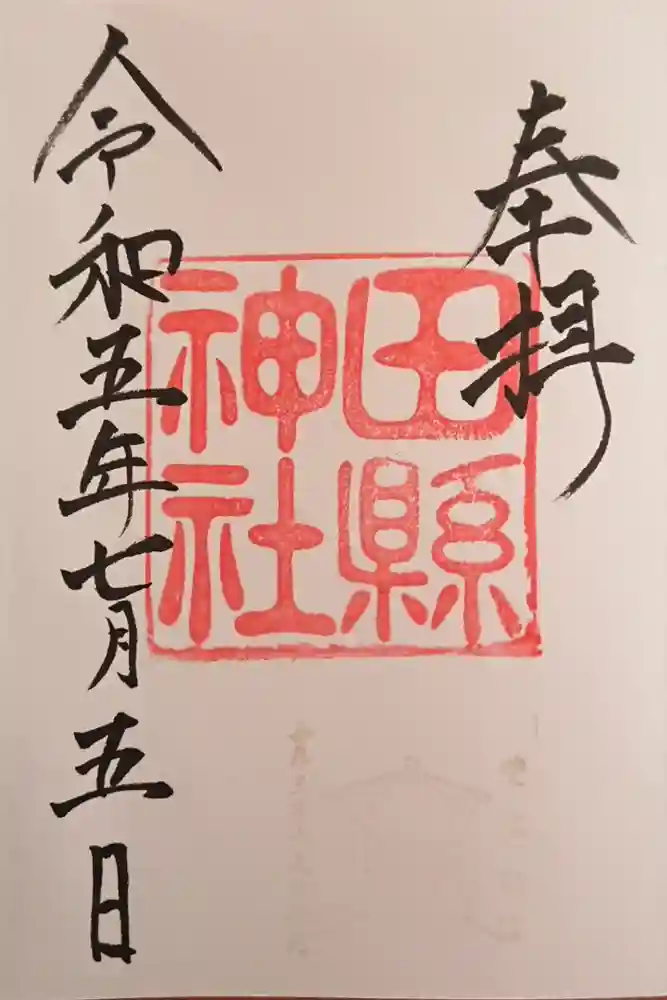 奉拝
田縣
神社
令和五年七月五日